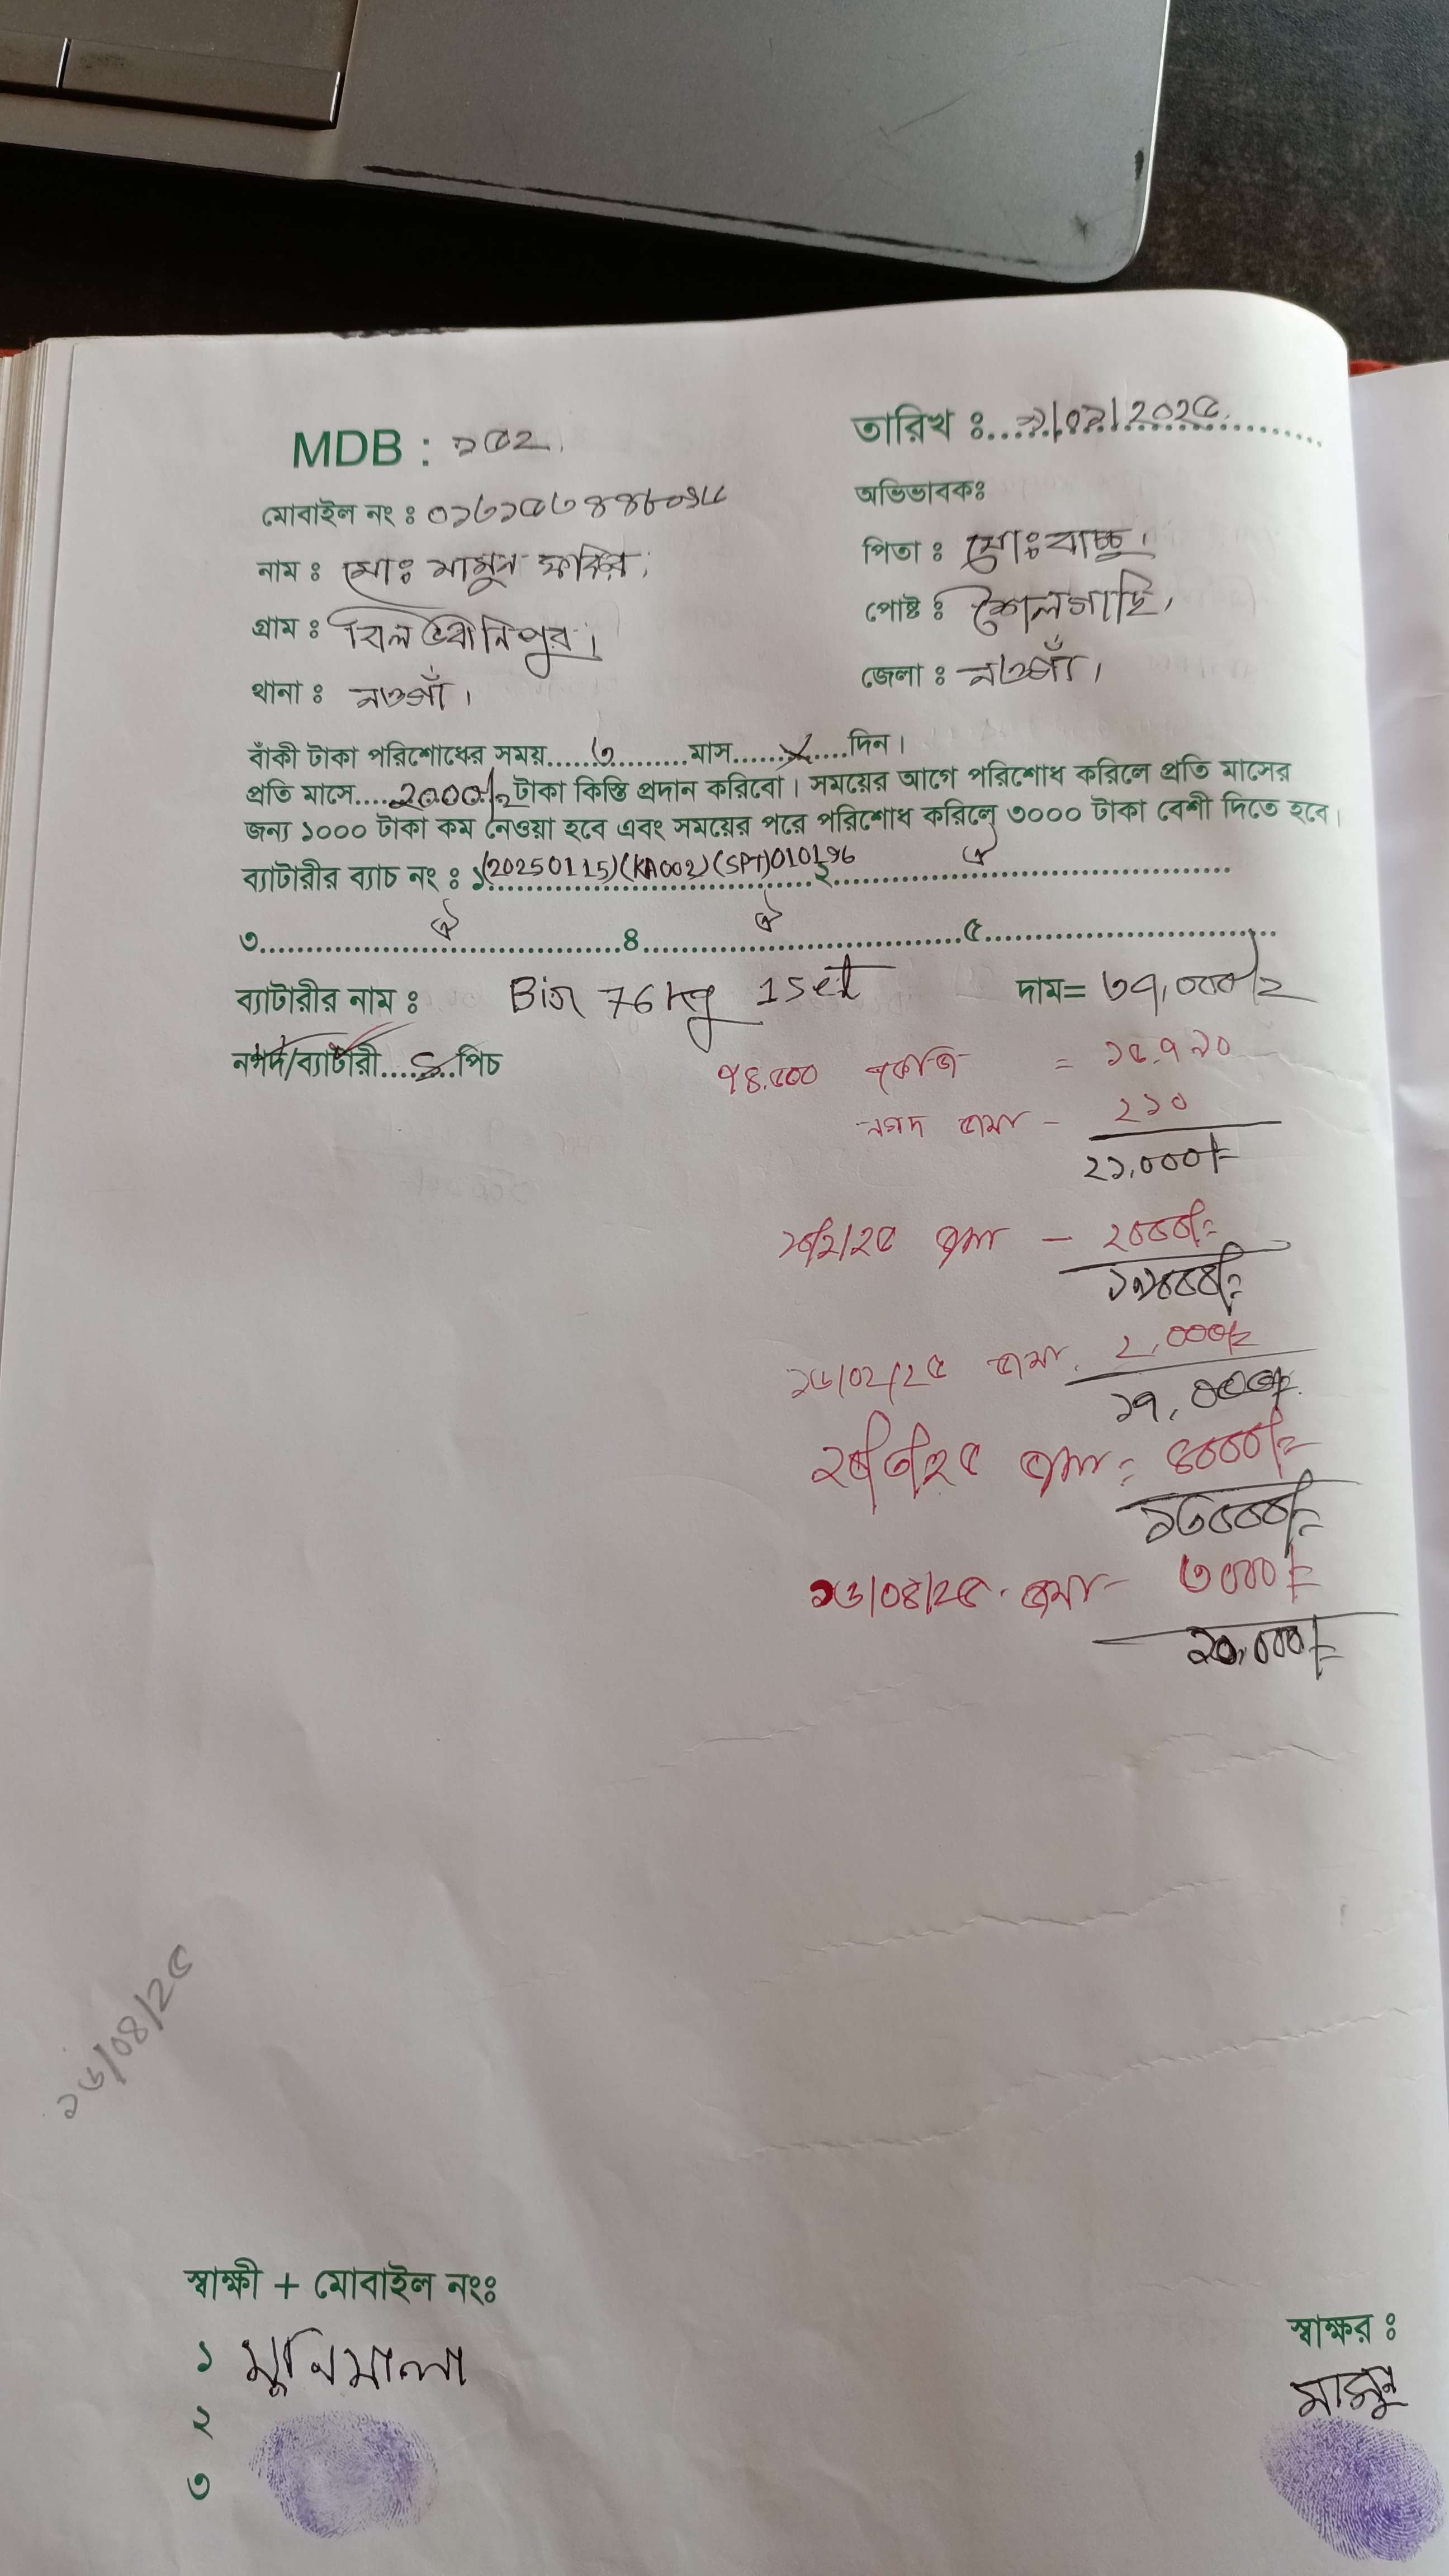 MDB : ১৫২
তারিখ ঃ ১/০২/২০২৫
মোবাইল নং ঃ
অভিভাবকঃ
নাম ঃ মোঃ মামুন ফকির
পিতা ঃ মোঃ বাচ্চু।
গ্রাম ঃ বিল ভবানিপুর।
পোষ্ট ঃ শৈলগাছি,
থানা ঃ নওগাঁ।
জেলা ঃ নওগাঁ।
বাঁকী টাকা পরিশোধের সময়......৩.........মাস......X....দিন।
প্রতি মাসে....২০০০/=টাকা কিস্তি প্রদান করিবো। সময়ের আগে পরিশোধ করিলে প্রতি মাসের
জন্য ১০০০ টাকা কম নেওয়া হবে এবং সময়ের পরে পরিশোধ করিলে ৩০০০ টাকা বেশী দিতে হবে।
ব্যাটারীর ব্যাচ নং ঃ ১(20250115)(KA002)(SPT)010196 ২ ঐ
৩ ঐ ৪ ঐ ৫
ব্যাটারীর নাম ঃ Bir 76 kg 1 Set দাম= ৩৭,০০০/=
নগদ/ব্যাটারী.....৪..পিচ
৭৪.৫০০ কেজি = ১৫,৭৯০
নগদ জমা - ২১০
২১,০০০/=
জমা - ২০০০/=
১৯০০০/=
১৬/০২/২৫ জমা. ২,০০০/=
১৭,০০০/=
২৫/৩/২৫ জমা = ৪০০০/=
১৩০০০/=
১৬/০৪/২৫. জমা - ৩০০০/=
১০,০০০/=
১৬/০৪/২৫
স্বাক্ষী + মোবাইল নংঃ
স্বাক্ষর ঃ
১ মুনিমালা
মামুন
২
৩